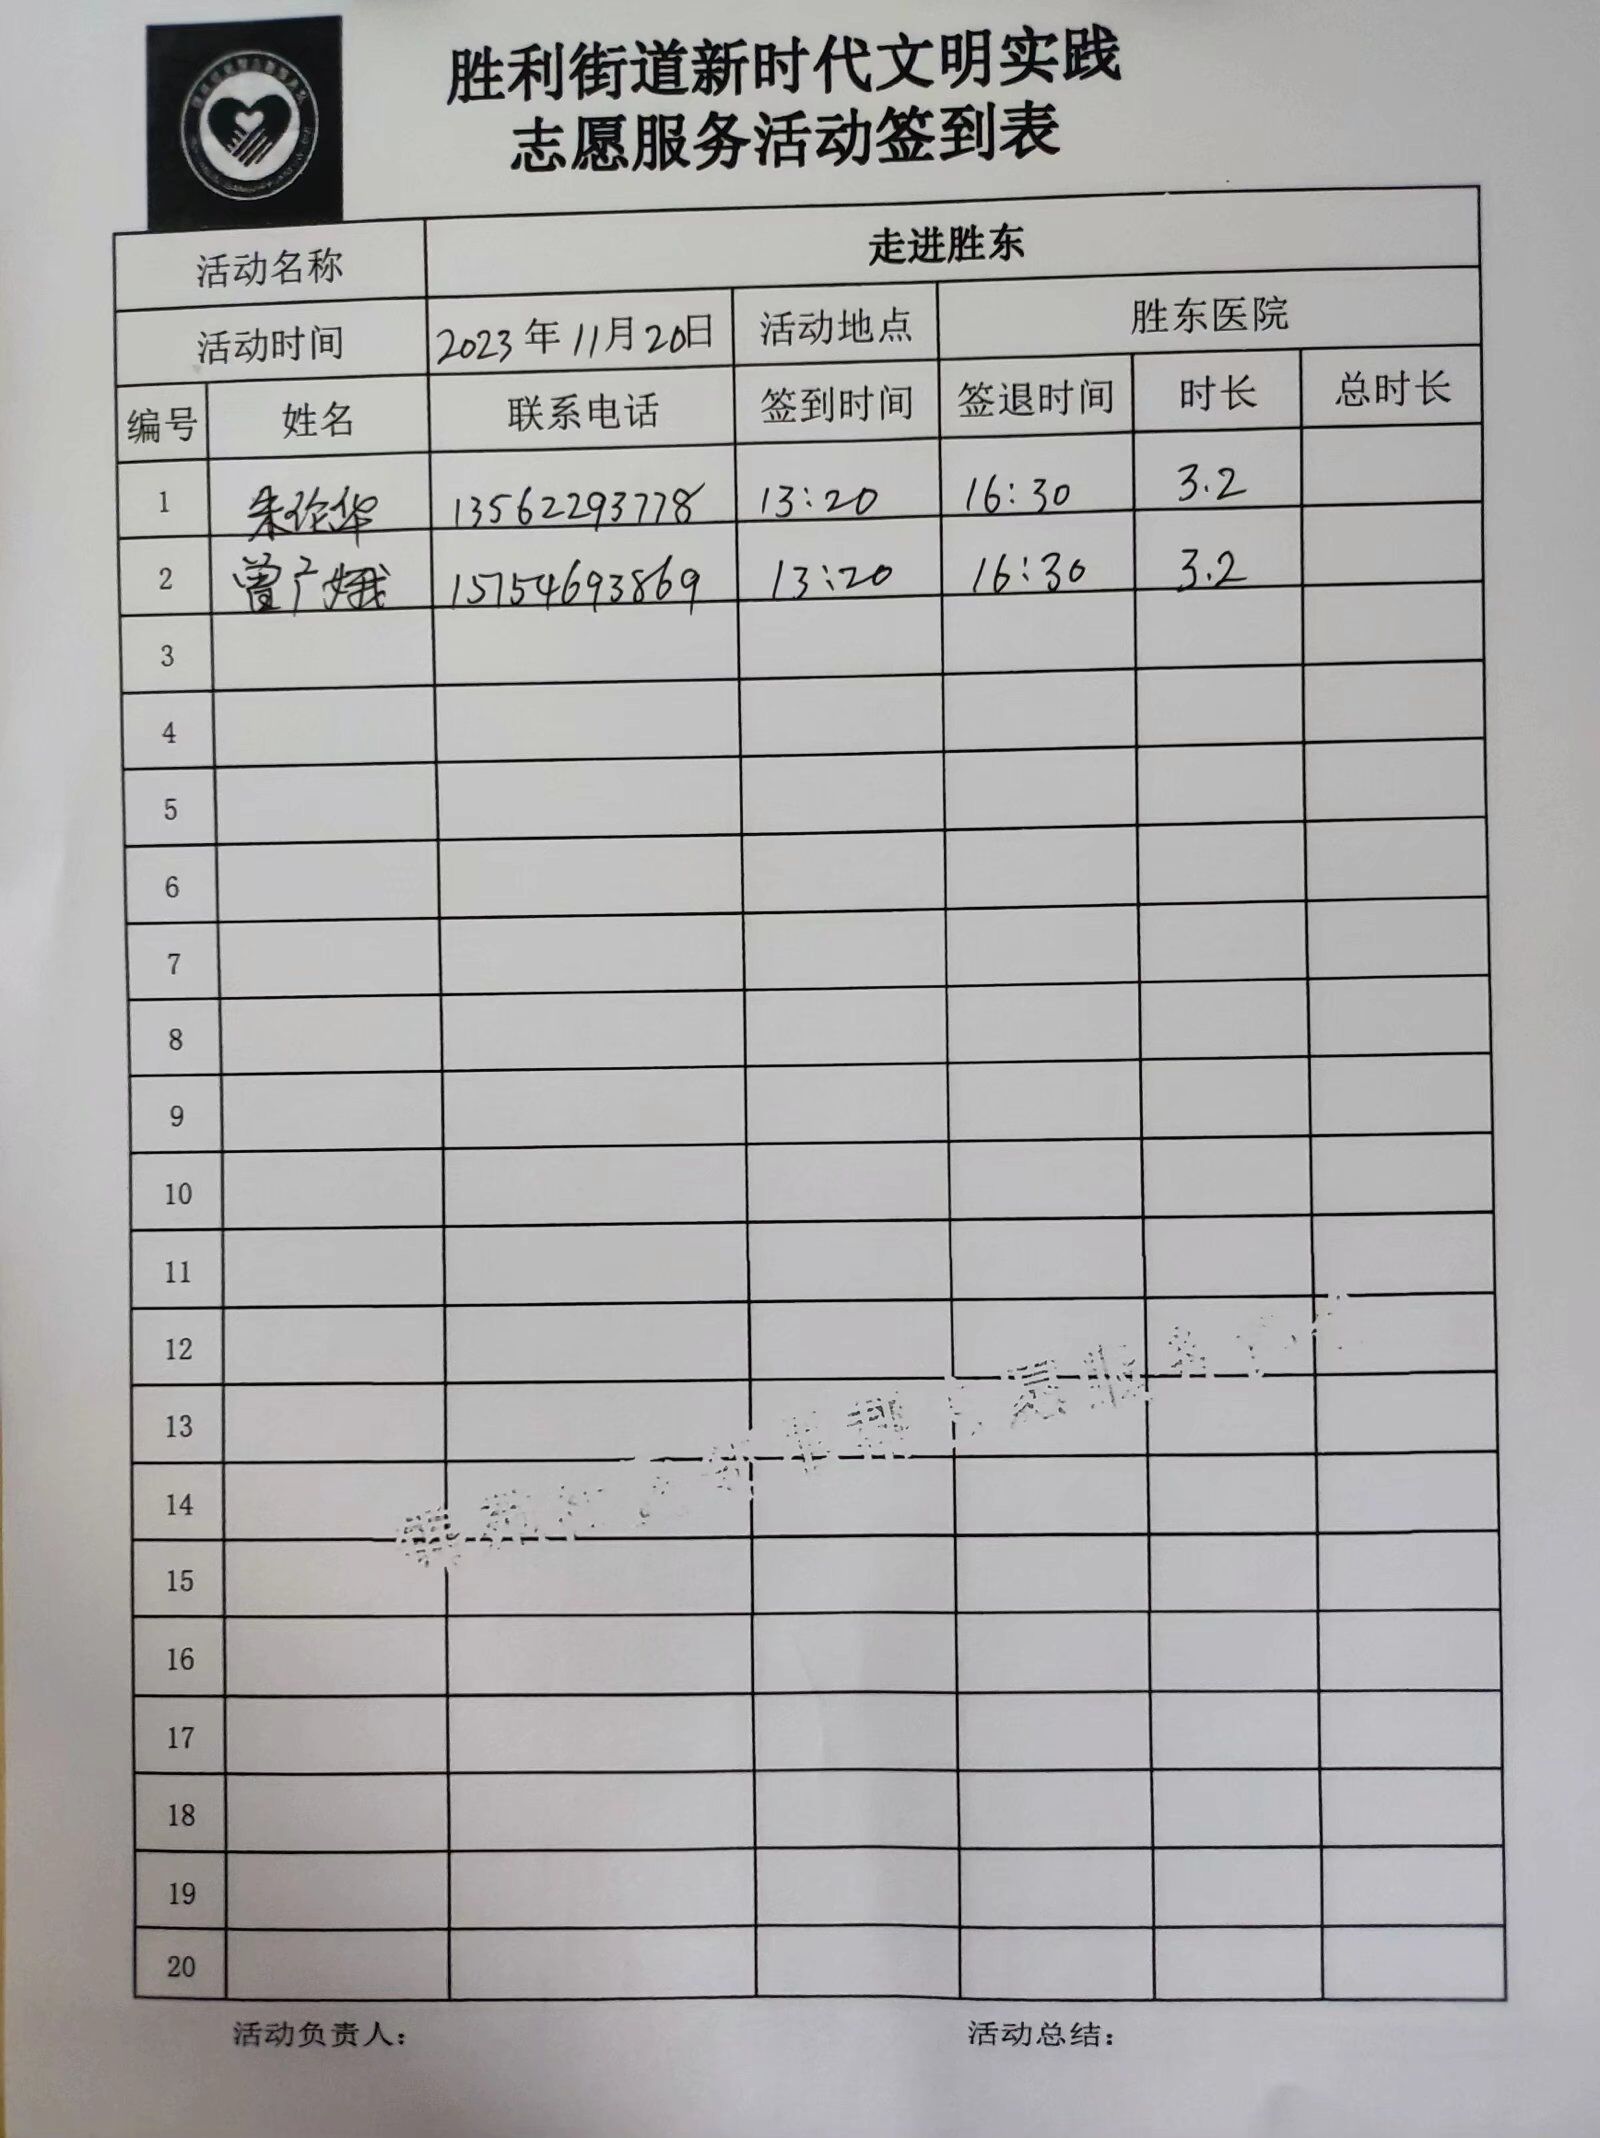 胜利街道新时代文明实践
志愿服务活动签到表
活动名称 走进胜东
活动时间 2023年11月20日 活动地点 胜东医院
编号 姓名 联系电话 签到时间 签退时间 时长 总时长
1 朱伦华 13562293778 13:20 16:30 3.2
2 曾广娥 15754693869 13:20 16:30 3.2
3
4
5
6
7
8
9
10
11
12
13
14
15
16
17
18
19
20
活动负责人： 活动总结：